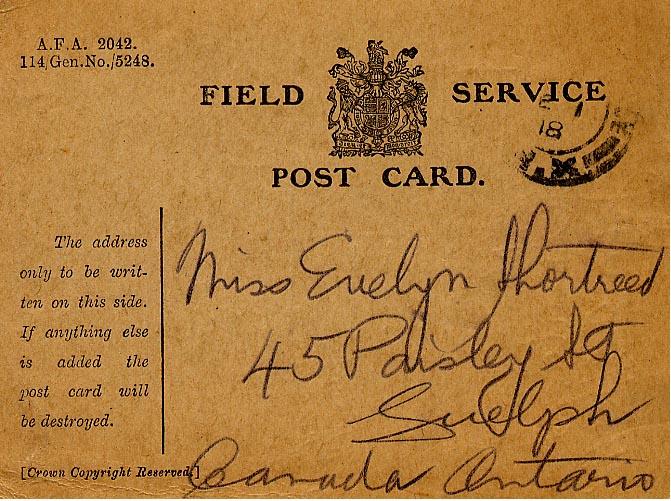 A.F.A. 2042.
114/Gen.No./5248.
FIELD SERVICE
POST CARD.
18
The address
only to be writ-
ten on this side.
If anything else
is added the
post card will
be destroyed.
[Crown Copyright Reserved.]
Miss Evelyn Shortreed
45 Paisley St
Guelph
Canada Ontario